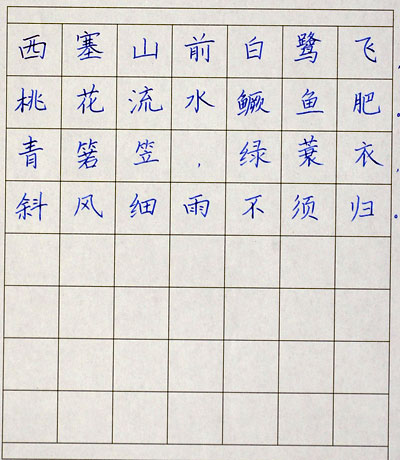 西塞山前白鹭飞,
桃花流水鳜鱼肥。
青箬笠,绿蓑衣,
斜风细雨不须归。